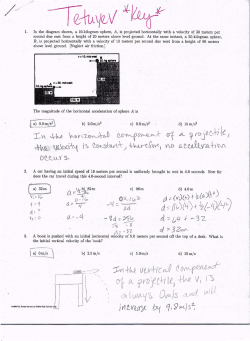 Tetuyev *Key*
1. In the diagram shown, a 10-kilogram sphere, A, is projected horizontally with a velocity of 30 meters per
second due east from a height of 20 meters above level ground. At the same instant, a 20-kilogram sphere,
B, is projected horizontally with a velocity of 10 meters per second due west from a height of 80 meters
above level ground. [Neglect air friction.]
The magnitude of the horizontal acceleration of sphere A is
a) 0.0 m/s²
In the horizontal component of a projectile,
the velocity is constant, therefore, no acceleration
occurs.
2. A car having an initial speed of 16 meters per second is uniformly brought to rest in 4.0 seconds. How far
does the car travel during this 4.0-second interval?
a) 32m
c) 96m
d) 4.0 m
a = -4
d = 64 + -32
d = 32m
3. A book is pushed with an initial horizontal velocity of 5.0 meters per second off the top of a desk. What is
the initial vertical velocity of the book?
a) 0 m/s
b) 2.5 m/s
c) 5.0m/s
d) 10 m/s
In the vertical component
of a projectile, the v, is
always 0m/s and will
increase by 9.8m/s².